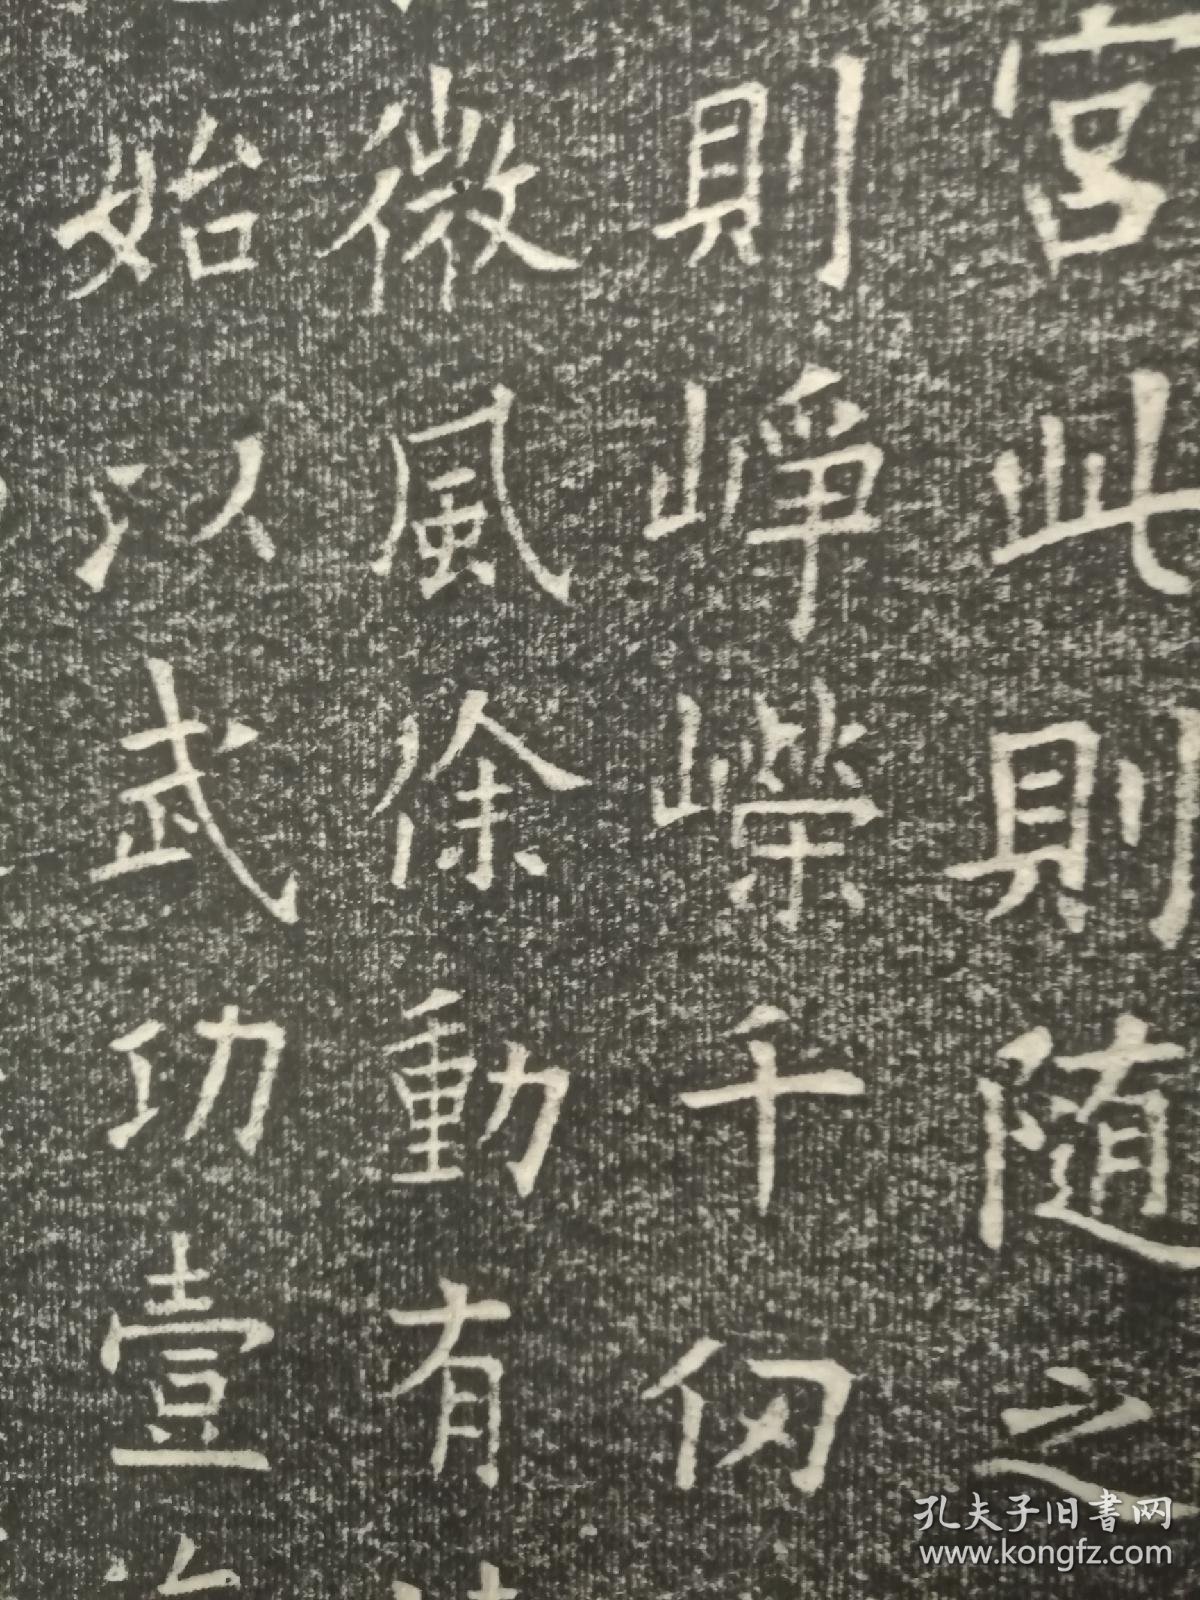 宮此則随之
則崢嶸千仞
微風徐動有
始以武功壹
孔夫子旧書网
www.kongfz.com